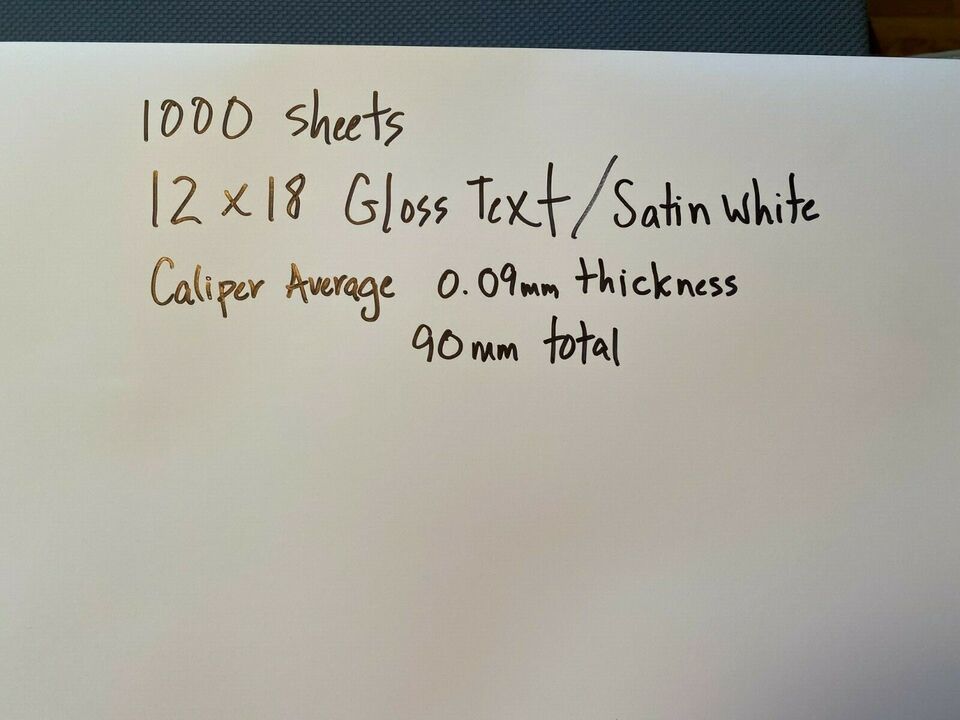 1000 sheets
12 x 18 Gloss Text/Satin White
Caliper Average 0.09mm thickness
90mm total